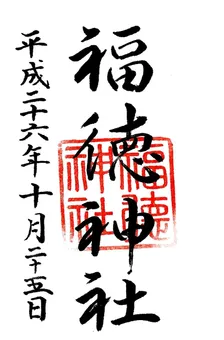 福徳神社
福徳
神社
平成二十六年十月二十五日